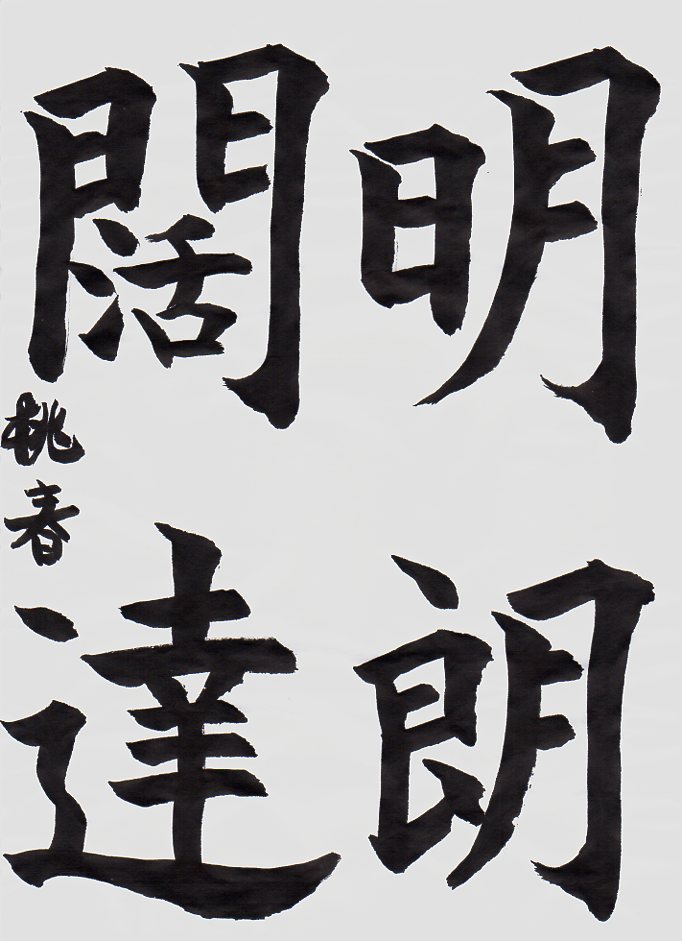 明朗
闊達
桃春